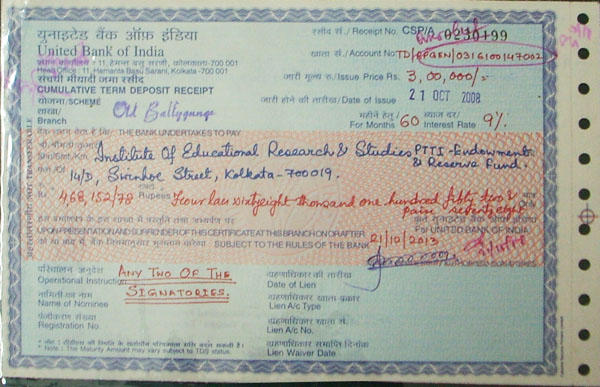 युनाइटेड बैंक ऑफ़ इंडिया
United Bank of India
रसीद सं./Receipt No. CSP/A 0230499
Head Office : 11, Hemanta Basu Sarani, Kolkata -700 001
खाता सं./Account No. TD/
संचयी मीयादी जमा रसीद
जारी मूल्य रु./Issue Price Rs. 3,00,000/-
CUMULATIVE TERM DEPOSIT RECEIPT
योजना/SCHEME
जारी होने की तारीख/Date of issue 21 OCT 2008
शाखा/
Branch Old Ballygunge
महीने हेतु ब्याज दर/
For Months 60 Interest Rate 9%
THE BANK UNDERTAKES TO PAY
Institute Of Educational Research & Studies PTTI - Endowment & Reserve Fund.
14/D, Swinhoe Street, Kolkata-700019.
4,68,152/78 Rupees Four lac sixtyeight thousand one hundred fifty two & paise seventyeight
Only
UPON PRESENTATION AND SURRENDER OF THIS CERTIFICATE AT THIS BRANCH ON OR AFTER 21/10/2013
For UNITED BANK OF INDIA
SUBJECT TO THE RULES OF THE BANK
परिचालन अनुदेश
Operational Instruction ANY TWO OF THE
SIGNATORIES.
नामिती का नाम
Name of Nominee
पंजीकरण संख्या
Registration No.
ग्रहणाधिकार की तारीख
Date of Lien
ग्रहणाधिकार खाता प्रकार
Lien A/c Type
ग्रहणाधिकार खाता सं.
Lien A/c No.
ग्रहणाधिकार समाप्ति दिनांक
Lien Waiver Date
* Note : The Maturity Amount may vary subject to TDS status.